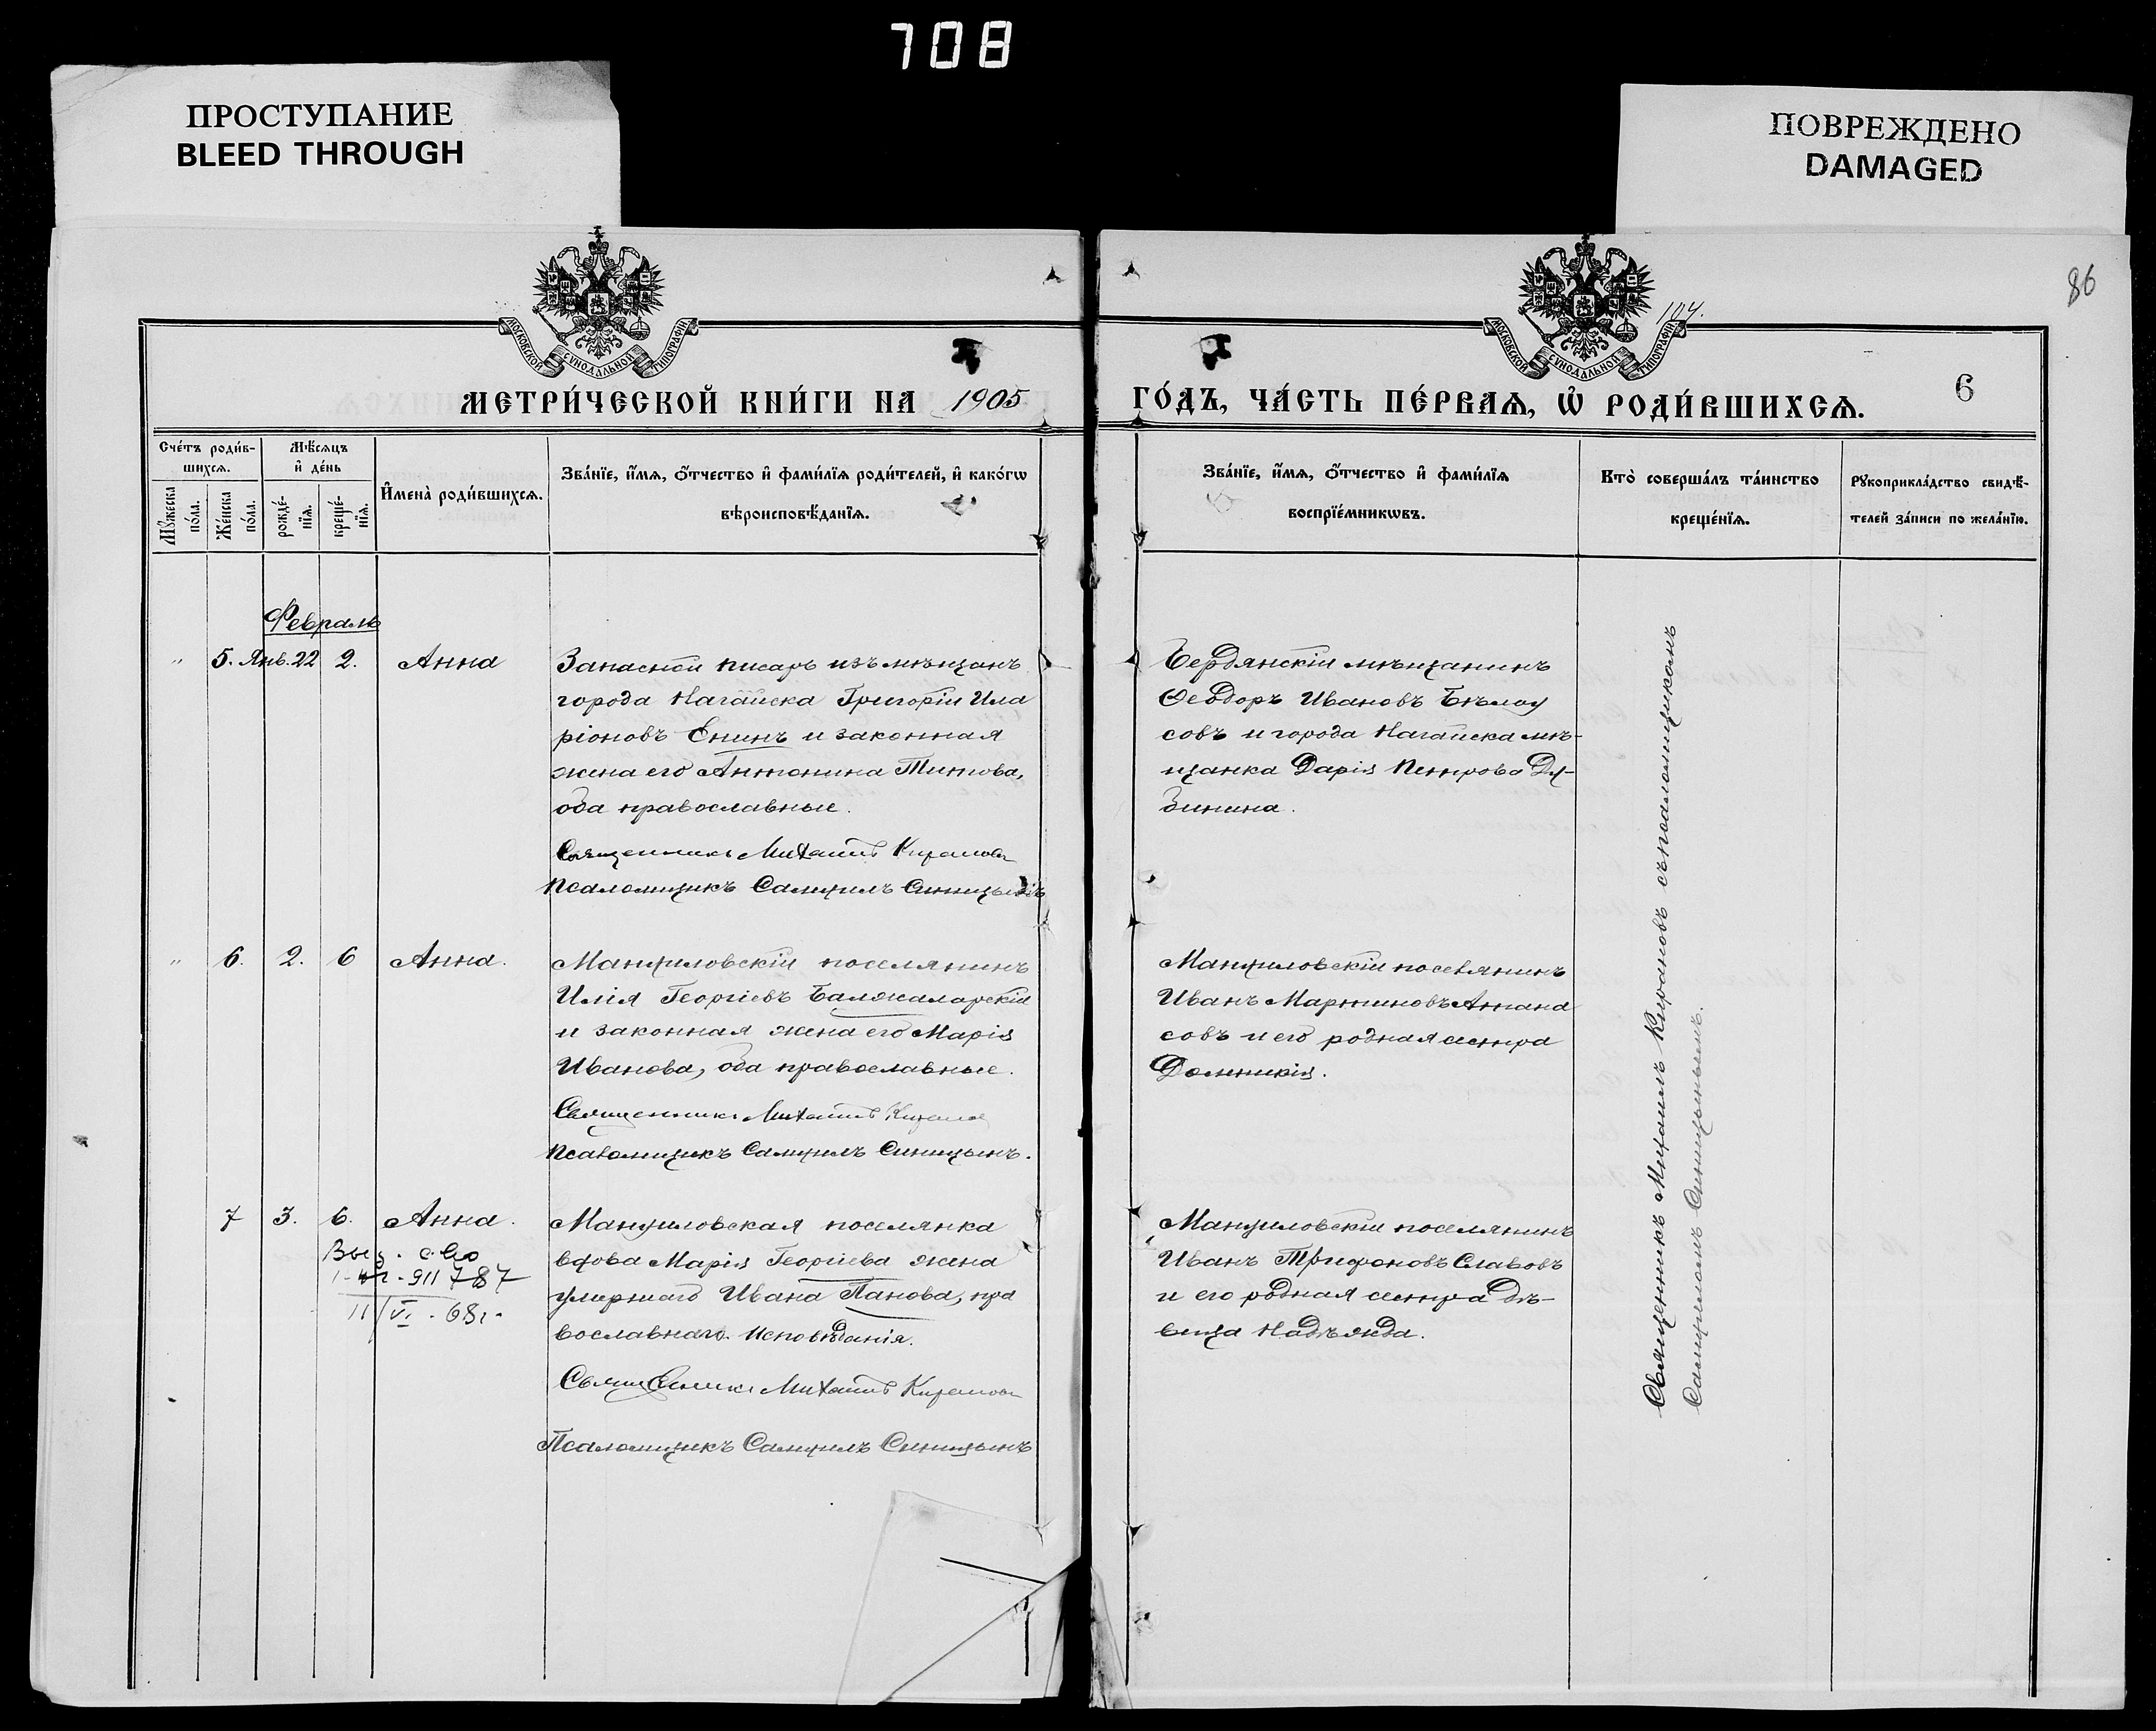 708
ПРОСТУПАНИЕ
BLEED THROUGH
ПОВРЕЖДЕНО
DAMAGED
86
104.
МОСКОВСКОЙ СѴНОДАЛЬНОЙ ТИПОГРАФІИ
МОСКОВСКОЙ СѴНОДАЛЬНОЙ ТИПОГРАФІИ
МЕТРИ́ЧЕСКОЙ КНИ́ГИ НА 1905 ГО́ДЪ, ЧА́СТЬ ПЕ́РВАѦ, Ѡ҆ РОДИ́ВШИХСѦ.
6
Сче́тъ роди́в-
шихсѧ.
Мѣ́сѧцъ
и҆ де́нь
Мꙋ́жеска
по́ла.
Же́нска
по́ла.
рожде́-
нїѧ.
креще́-
нїѧ.
И҆мена̀ роди́вшихсѧ.
Зва́нїе, и҆́мѧ, ѻ҆́тчество и҆ фами́лїѧ роди́телей, и҆ како́гѡ
вѣроисповѣ́данїѧ.
Зва́нїе, и҆́мѧ, ѻ҆́тчество и҆ фами́лїѧ
воспрїе́мникѡвъ.
Кто̀ соверша́лъ та́инство
креще́нїѧ.
Рꙋкоприкла́дство свидѣ́-
телей за́писи по жела́нїю.
Февраль
" 5. Янв. 22 2. Анна
Запасной писарь изъ мѣщанъ
города Ногайска Григорій Ила
ріоновъ Енинъ и законная
жена его Антонина Титова,
оба православные.
Священникъ Михаилъ Кирановъ
Псаломщикъ Самуилъ Синицынъ
Бердянскій мѣщанинъ
Ѳеодоръ Ивановъ Бѣлоу
совъ и города Ногайска мѣ-
щанка Дарія Петрова Ду-
бинина.
" 6. 2. 6 Анна.
Мануиловскій поселянинъ
Илія Георгіевъ Балжаларскій
и законная жена его Марія
Иванова, оба православные.
Священникъ Михаилъ Киранов
Псаломщикъ Самуилъ Синицынъ.
Мануиловскій поселянинъ
Иванъ Мартиновъ Атана
совъ и его родная сестра
Домникія.
7 3. 6. Анна.
Выд. с-во
911 787
11/VI - 68г.
Мануиловская поселянка
вдова Марія Георгіева жена
умершаго Ивана Панова, пра
вославнаго исповѣданія.
Священникъ Михаилъ Кирановъ
Псаломщикъ Самуилъ Синицынъ
Мануиловскій поселянинъ
Иванъ Трифоновъ Славовъ
и его родная сестра дѣ-
вица Надѣжда.
Священникъ Михаилъ Кирановъ съ псаломщикомъ
Самуиломъ Синицынымъ.